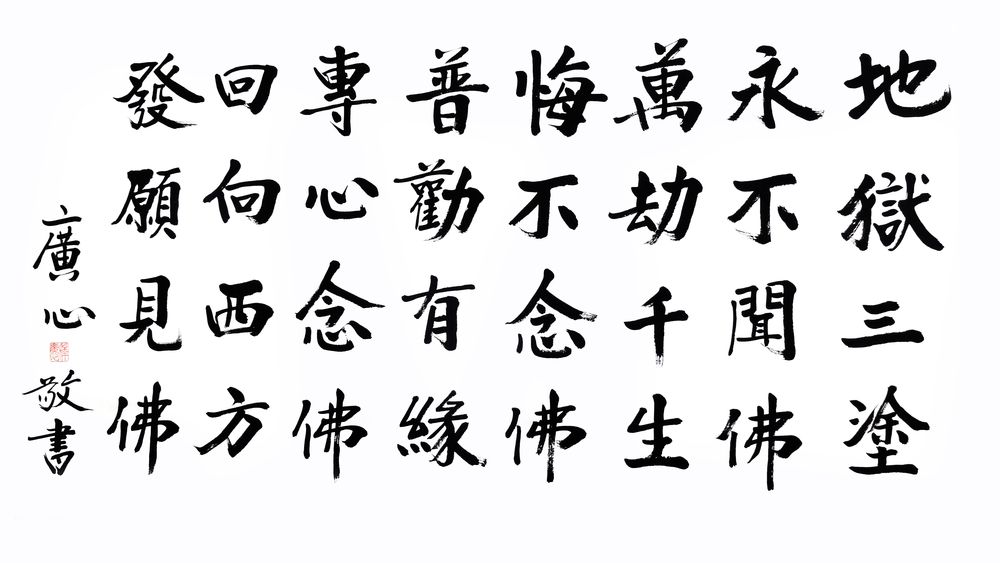 地獄三塗
永不聞佛
萬劫千生
悔不念佛
普勸有緣
專心念佛
回向西方
發願見佛
廣心敬書